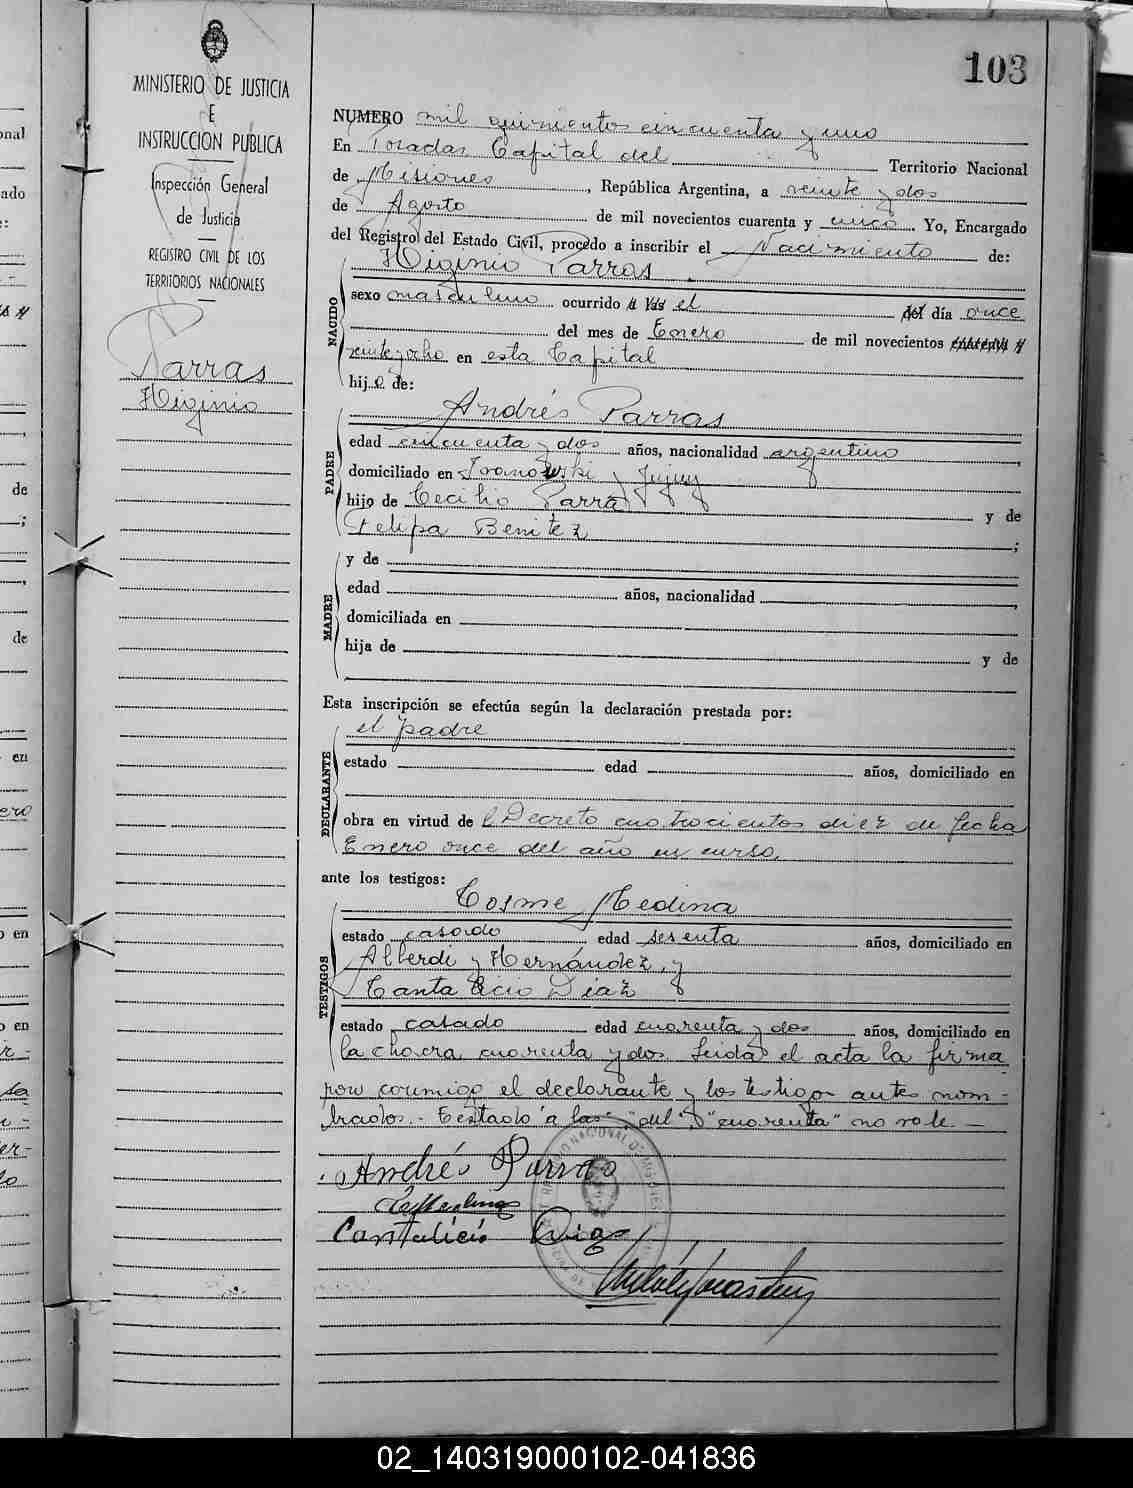 103
MINISTERIO DE JUSTICIA
E
INSTRUCCION PUBLICA
Inspección General
de Justicia
REGISTRO CIVIL DE LOS
TERRITORIOS NACIONALES
Parras
Higinio
NUMERO mil quinientos cincuenta y uno
En Posadas Capital del Territorio Nacional
de Misiones, República Argentina, a veinte y dos
de Agosto de mil novecientos cuarenta y cinco. Yo, Encargado
del Registro del Estado Civil, procedo a inscribir el Nacimiento de:
Higinio Parras
NACIDO
sexo masculino ocurrido a las el del día once
del mes de Enero de mil novecientos cuarenta y
veinte y ocho en esta Capital
hijo de:
Andrés Parras
PADRE
edad cincuenta y dos años, nacionalidad argentino,
domiciliado en y Jujuy
hijo de Cecilio Parra y de
Felipa Benitez;
MADRE
y de
edad años, nacionalidad,
domiciliada en
hija de y de
Esta inscripción se efectúa según la declaración prestada por:
el padre
DECLARANTE
estado edad años, domiciliado en
obra en virtud del Decreto cuatrocientos diez de fecha
Enero once del año en curso,
ante los testigos:
Cosme Medina
TESTIGOS
estado casado edad sesenta años, domiciliado en
Alberdi y Hernández, y
Cantalicio Diaz
estado casado edad cuarenta y dos años, domiciliado en
la chacra cuarenta y dos. Leida el acta la firma
ron conmigo el declarante y los testigos antes nom-
brados.- Testado "a las" "del" y "cuarenta" no vale.-
Andrés Parras
Cantalicio Diaz
02_140319000102-041836